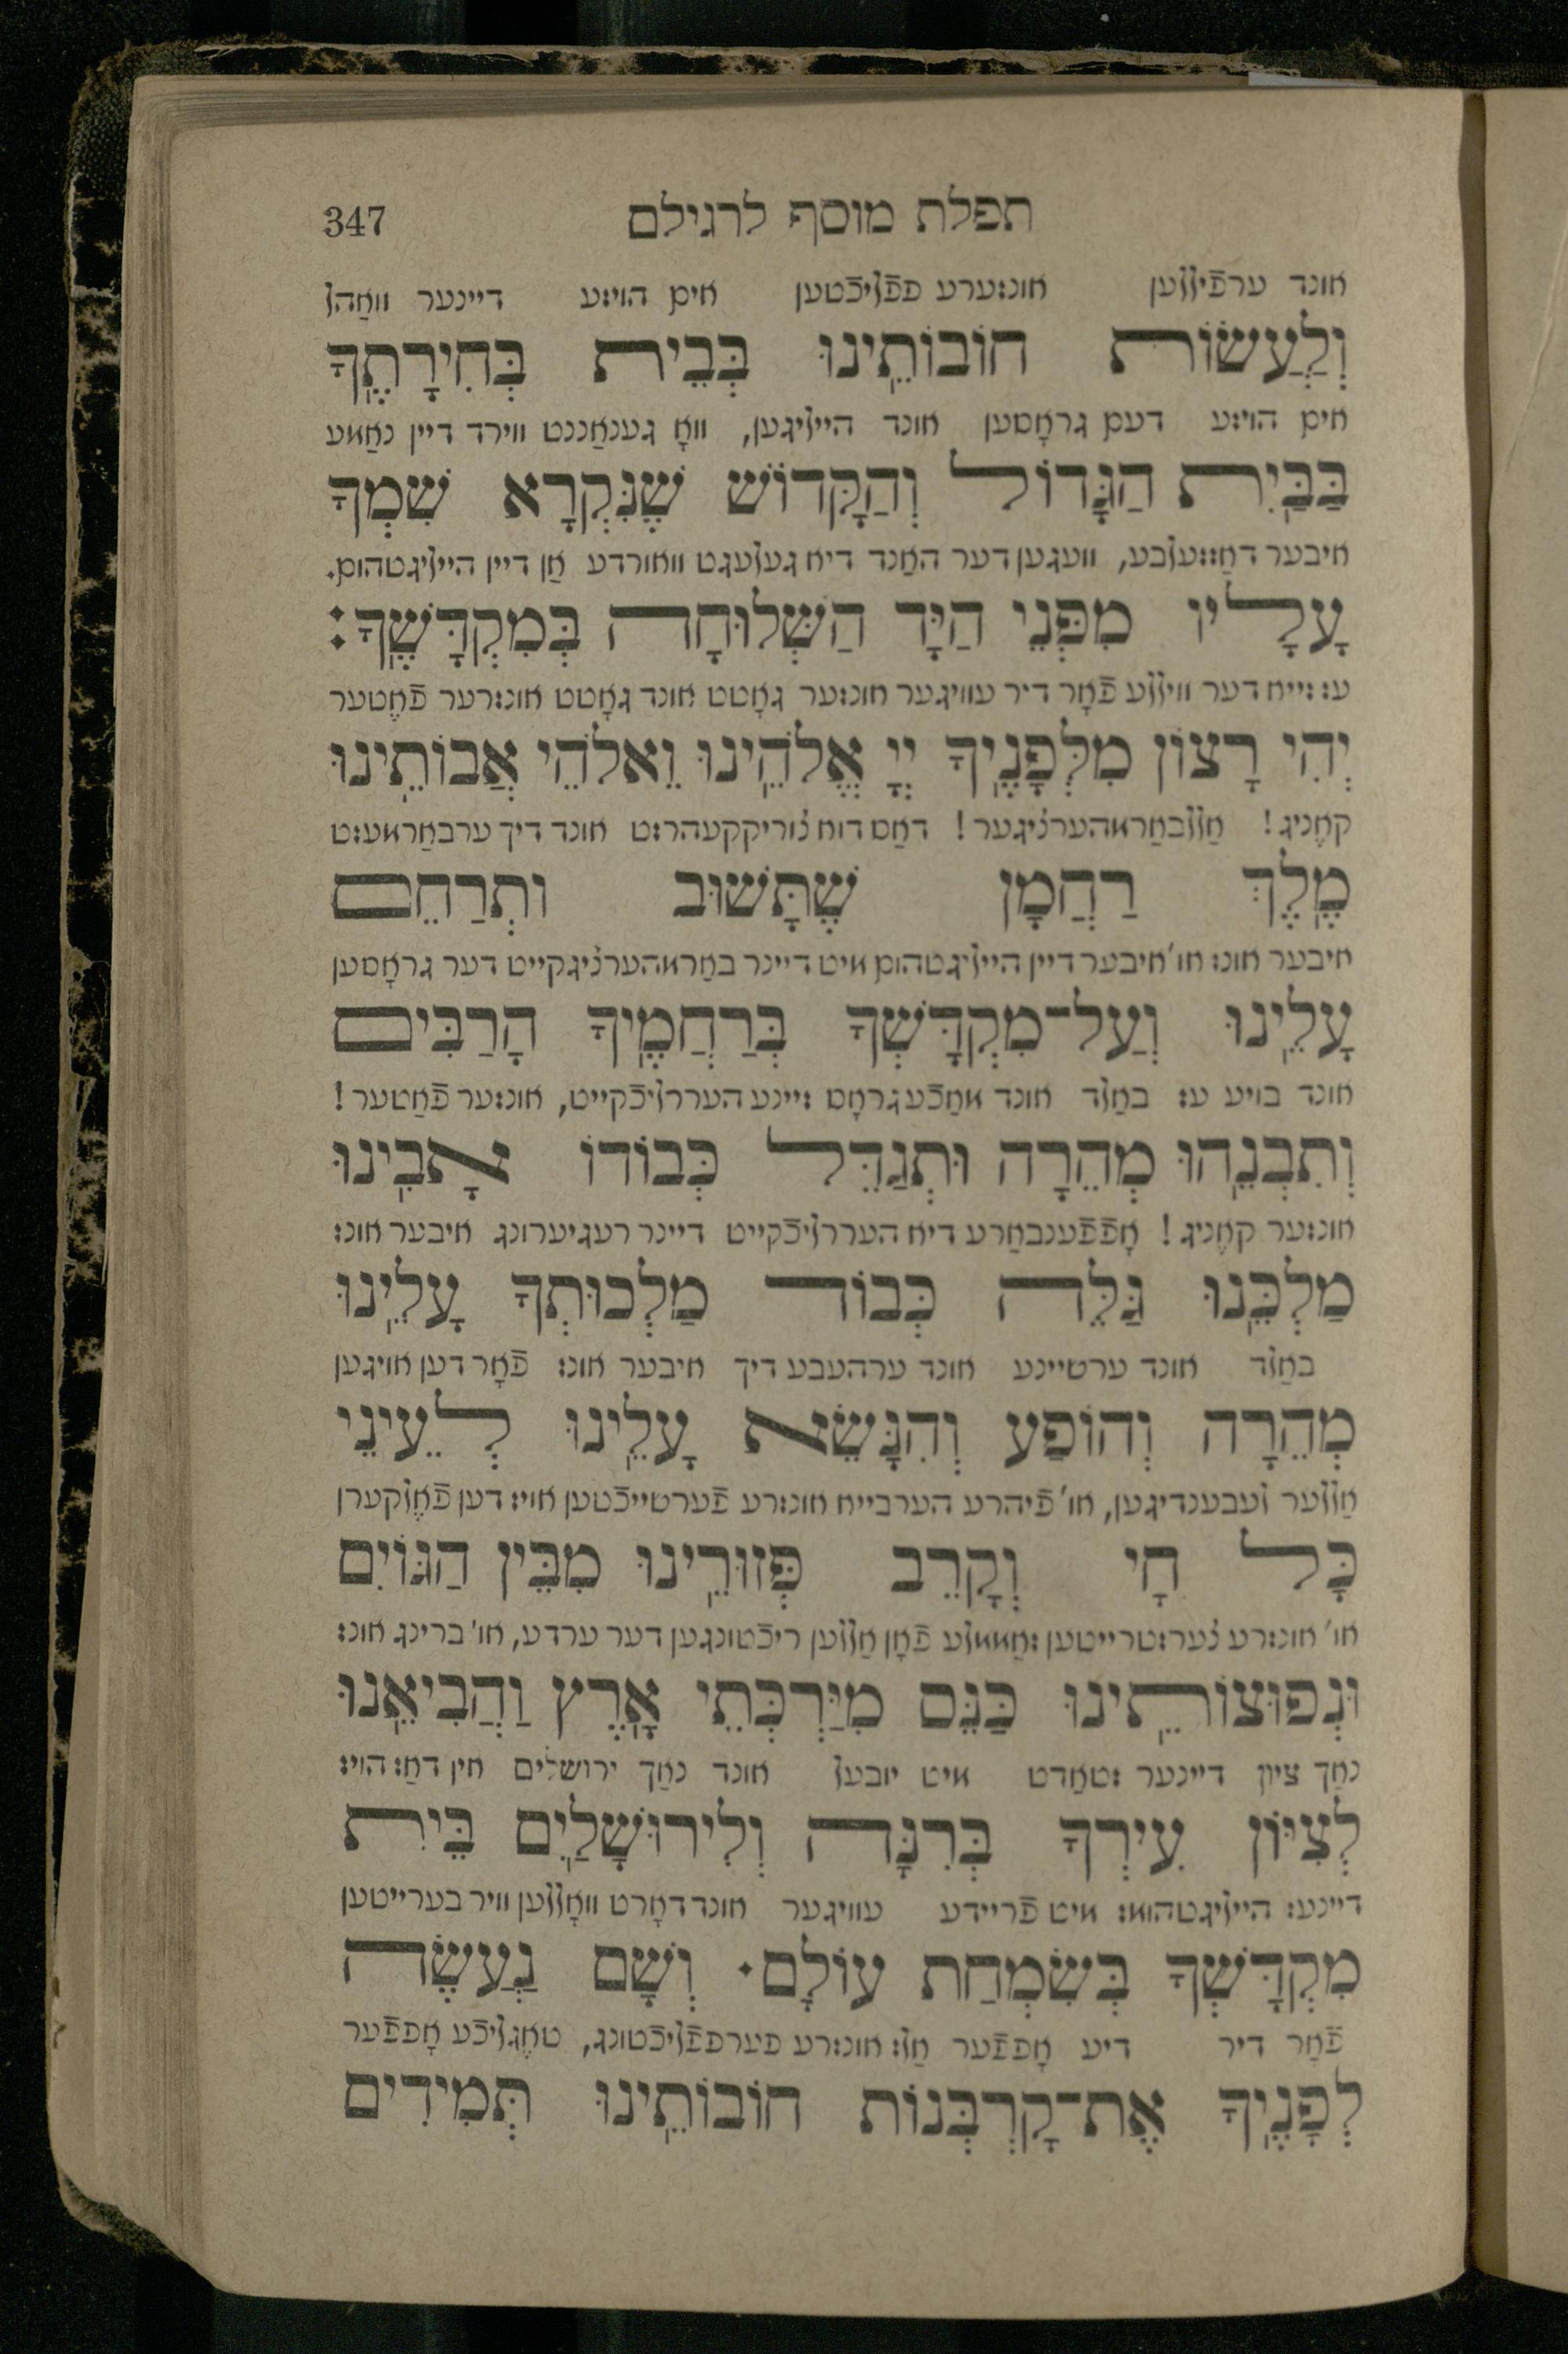 תפלת מוסף לרגילם 347
אונד ערפֿיללען אונזערע פפֿליכֿטען אים הויזע דיינער וואַהל
וְלַעֲשׂוֹת חוֹבוֹתֵינוּ בְּבֵית בְּחִירָתֶךָ
אים הויזע דעם גראָסען אונד הייליגען, וואָ גענאַננט ווירד דיין נאַמע
בַּבַּיִת הַגָּדוֹל וְהַקָּדוֹשׁ שֶׁנִּקְרָא שִׁמְךָ
איבער דאַססעלבע, וועגען דער האַנד דיא געלעגט וואורדע אַן דיין הייליגטהום.
עָלָיו מִפְּנֵי הַיָּד הַשְּׁלוּחָה בְּמִקְדָּשֶׁךָ:
עס זייא דער ווילל‌ע פֿאָר דיר עוויגער אונזער גאָטט אונד גאָטט אונזרער פֿאֶטער
יְהִי רָצוֹן מִלְּפָנֶיךָ יְיָ אֱלֹהֵינוּ וֵאלֹהֵי אֲבוֹתֵינוּ
קאֶניג! אַללבאַרמהערציגער! דאַס דוא צוריקקעהרסט אונד דיך ערבאַרמעסט
מֶלֶךְ רַחֲמָן שֶׁתָּשׁוּב וּתְרַחֵם
איבער אונס או' איבער דיין הייליגטהום מיט דיינר באַרמהערציגקייט דער גראָסען
עָלֵינוּ וְעַל־מִקְדָּשְׁךָ בְּרַחֲמֶיךָ הָרַבִּים
אונד בויע עס באַלד אונד מאַכֿע גראָס זיינע העררליכֿקייט, אונזער פֿאַטער!
וְתִבְנֵהוּ מְהֵרָה וּתְגַדֵּל כְּבוֹדוֹ אָבִינוּ
אונזער קאֶניג! אָפֿפֿענבאַרע דיא העררליכֿקייט דיינר רעגיערונג איבער אונס
מַלְכֵּנוּ גַּלֵּה כְּבוֹד מַלְכוּתְךָ עָלֵינוּ
באַלד אונד ערשיינע אונד ערהעבע דיך איבער אונס פֿאָר דען אויגען
מְהֵרָה וְהוֹפַע וְהִנָּשֵׂא עָלֵינוּ לְעֵינֵי
אַללער לעבענדיגען, או' פֿיהרע הערבייא אונזרע פֿערשטייכֿטען אויס דען פֿאֶלקערן
כָּל חָי וְקָרֵב פְּזוּרֵינוּ מִבֵּין הַגּוֹיִם
או' אונזרע צערשטרייטען זאַממלע פֿאָן אַללען ריכֿטונגען דער ערדע, או' ברינג אונס
וּנְפוּצוֹתֵינוּ כַּנֵּס מִיַּרְכְּתֵי אָרֶץ וַהֲבִיאֵנוּ
נאַך ציון דיינער שטאַדט מיט יובעל אונד נאַך ירושלים אין דאַס הויס
לְצִיּוֹן עִירְךָ בְּרִנָּה וְלִירוּשָׁלַיִם בֵּית
דיינעס הייליגטהומס מיט פֿריידע עוויגער אונד דאָרט וואָללען וויר בערייטען
מִקְדָּשְׁךָ בְּשִׂמְחַת עוֹלָם. וְשָׁם נַעֲשֶׂה
פֿאָר דיר דיע אָפפֿער אַלס אונזרע פערפפֿליכֿטונג, טאֶגליכֿע אָפפֿער
לְפָנֶיךָ אֶת־קָרְבְּנוֹת חוֹבוֹתֵינוּ תְּמִידִים